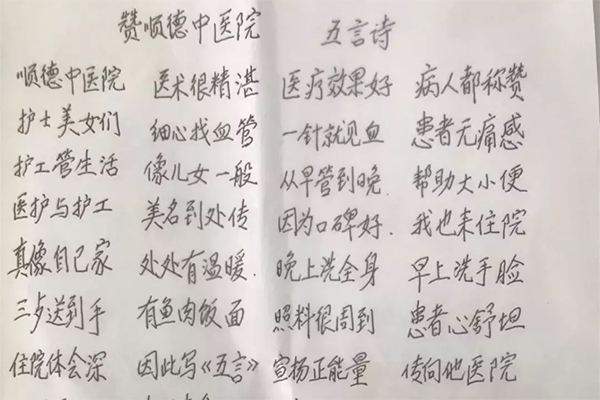 赞顺德中医院 五言诗
顺德中医院 医术很精湛 医疗效果好 病人都称赞
护士美女们 细心找血管 一针就见血 患者无痛感
护工管生活 像儿女一般 从早管到晚. 帮助大小便
医护与护工 美名到处传 因为口碑好. 我也来住院
真像自己家 处处有温暖. 晚上洗全身 早上洗手脸
三步送到手 有鱼肉饭面 照料很周到 患者心舒坦
住院体会深 因此写《五言》 宣扬正能量 传向他医院